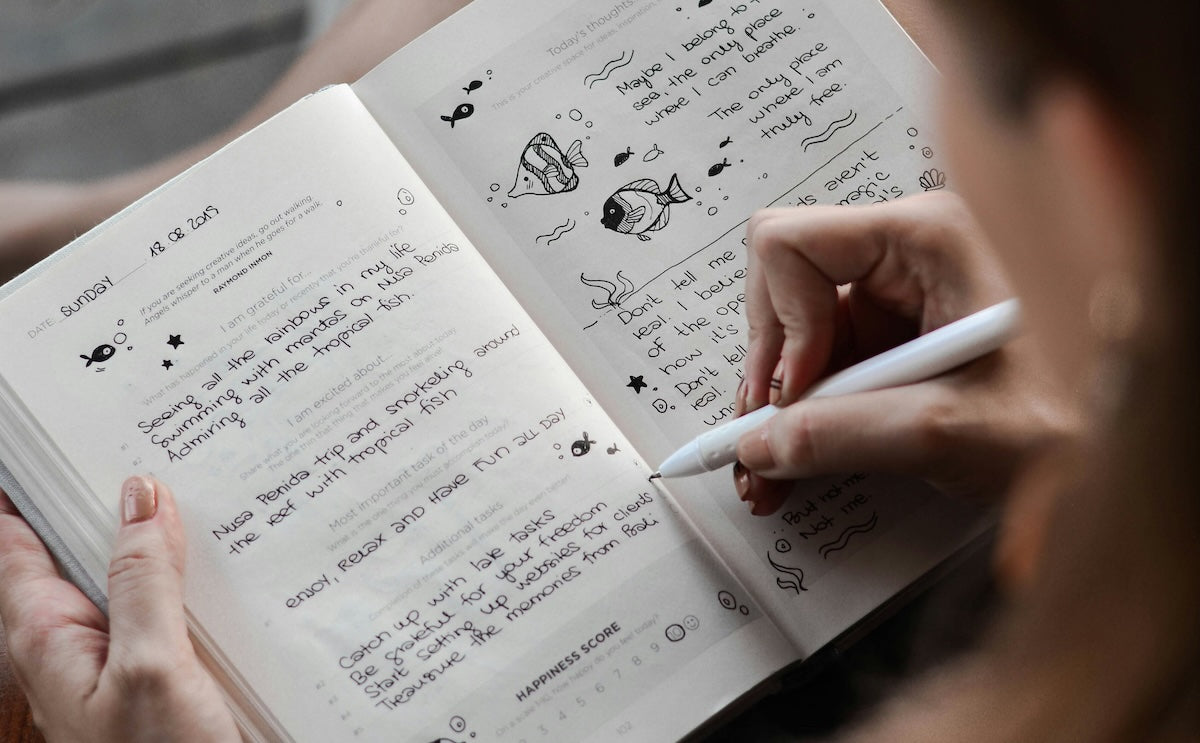 DATE SUNDAY 18 08 2019
If you are seeking creative ideas, go out walking.
Angels whisper to a man when he goes for a walk.
RAYMOND INMON
I am grateful for...
What has happened in your life today or recently that you're thankful for?
Seeing all the rainbows in my life
Swimming with mantas on Nusa Penida
Admiring all the tropical fish.
I am excited about...
Share what you are looking forward to the most about today
The one thing that makes you feel alive!
Nusa Penida trip and snorkeling around
the reef with tropical fish
Most important task of the day
What is the one thing you must accomplish today?
ENJOY, RELAX AND HAVE FUN ALL DAY
Additional tasks
completion of these tasks will make the day even better!
Catch up with late tasks
Be grateful for your freedom
Start setting up websites for clients
Treausure the memories from Bali
HAPPINESS SCORE
On a scale 1-10, how happy do you feel today?
3 4 5 6 7 8 9 10
102
Today's thoughts
This is your creative space for ideas, inspiration,
Maybe I belong to
sea, the only place
where I can breathe.
The only place
where I am
truly free.
aren't
magic
Don't tell me
real. I believ
of the ope
how it's
Don't tell
real.
But not me.
Not me.